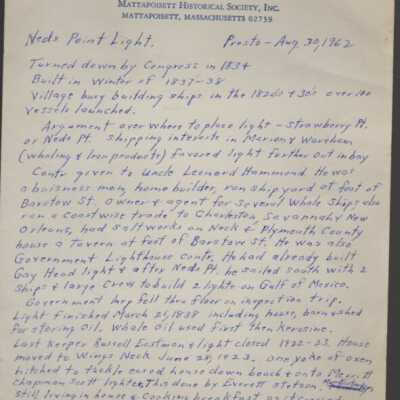 MATTAPOISETT HISTORICAL SOCIETY, INC.
MATTAPOISETT, MASSACHUSETTS 02739
Neds Point Light. Presto - Aug. 30, 1962
Turned down by Congress in 1834
Built in Winter of 1837-38
Village busy building ships in the 1820s & 30's over 100
vessels launched.
Argument over where to place light - Strawberry Pt.
or Neds Pt. shipping interests in Marion & Wareham
(whaling & Iron products) favored light farther out in bay
Contr given to Uncle Leonard Hammond He was
a buisness man, home builder, ran shipyard at foot of
Barstow St. owner & agent for several Whale Ships also
ran a Coastwise trade to Charleston, Savannah & New
Orleans, had saltworks on Neck & Plymouth County
house a Tavern at foot of Barstow St. He was also
Government Lighthouse Contr. He had already built
Gay Head light & after Neds Pt. he sailed south with 2
ships & large Crew to build 2 lights on Gulf of Mexico.
Government Rep fell thru floor on inspection trip.
Light finished March 21, 1838 including house, barn & shed
for storing oil. Whale oil used first then Kerosine.
Last Keeper Russell Eastman & light closed 1922-23. House
moved to Wings Neck June 28, 1923. One yoke of oxen
hitched to tackle eased house down beach & onto Merritt
Chapman Scott lighter, This done by Everett Stetson,
still living in house & cooking breakfast as it